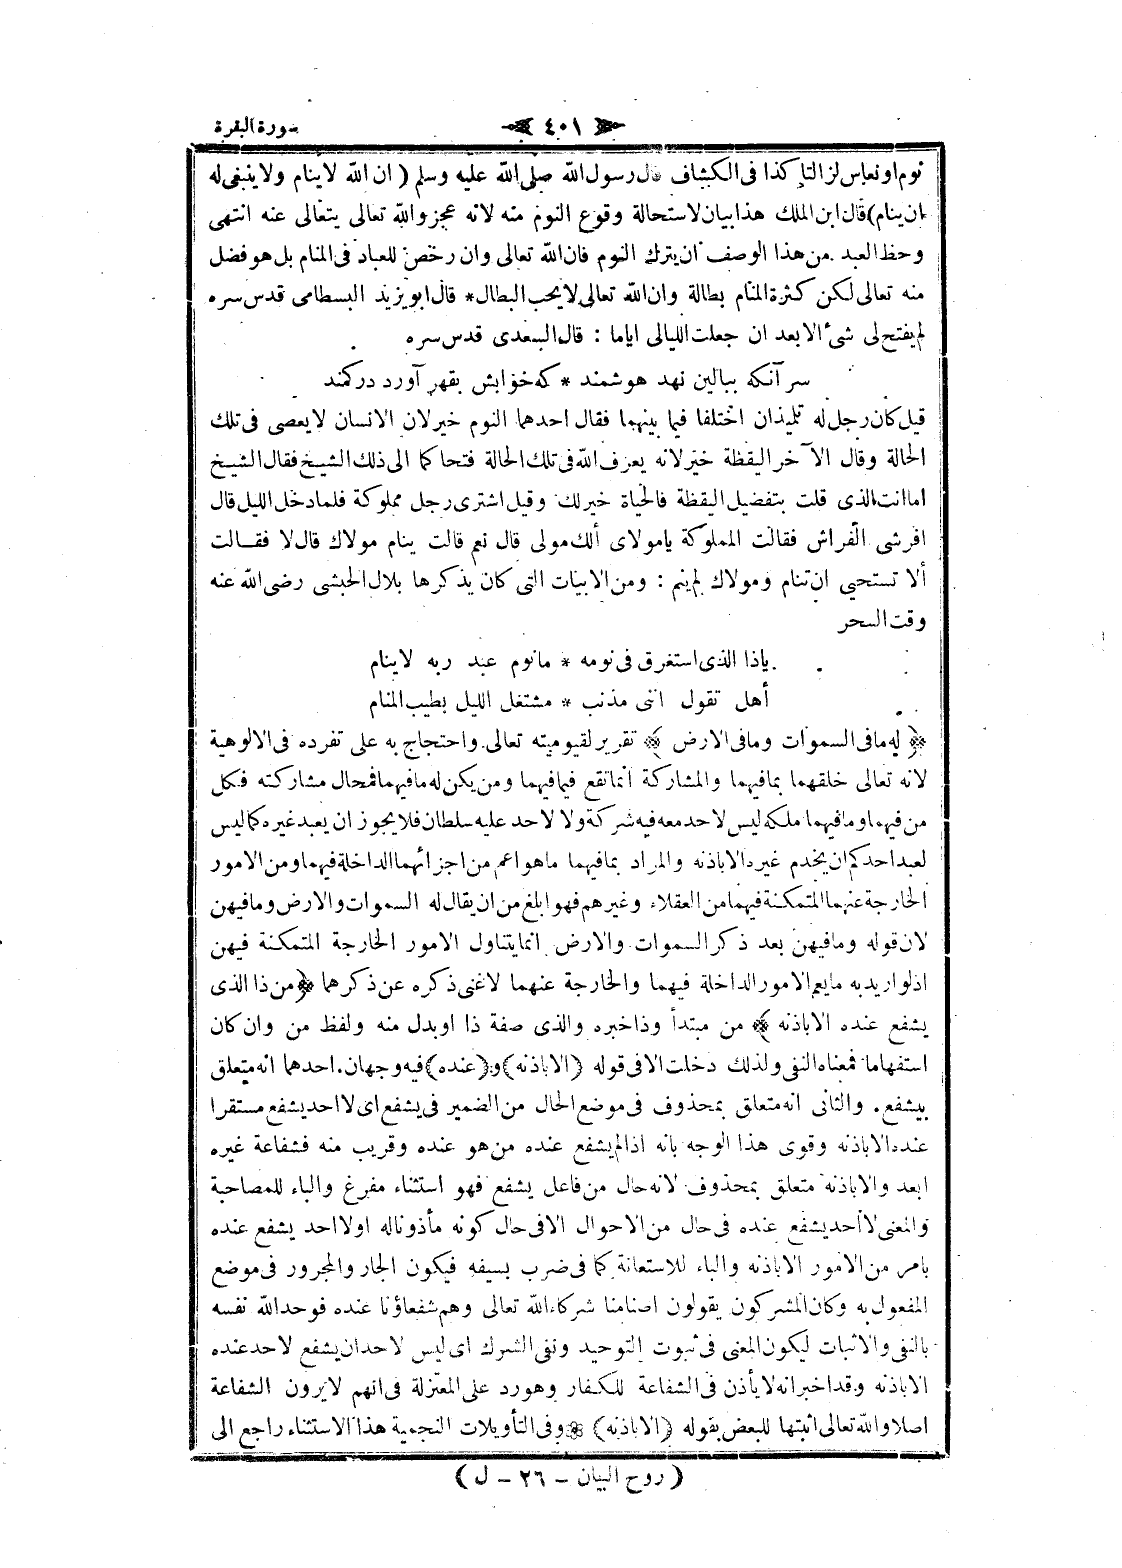 سورة البقرة
٤٠١
نوم او نعاس لزالتا كذا فى الكشاف قال رسول الله صلى الله عليه وسلم ( ان الله لا ينام ولا ينبغى له
ان ينام) قال ابن الملك هذا بيان لاستحالة وقوع النوم منه لانه عجز والله تعالى يتعالى عنه انتهى
وحظ العبد من هذا الوصف ان يترك النوم فان الله تعالى وان رخص للعباد فى المنام بل هو فضل
منه تعالى لكن كثرة المنام بطالة وان الله تعالى لا يحب البطال * قال ابو يزيد البسطامى قدس سره
لم يفتح لى شئ الا بعد ان جعلت الليالى اياما : قال السعدى قدس سره
سر آنكه ببالين نهد هوشمند * كه خوابش بقهر آورد در كمند
قيل كان رجل له تلميذان اختلفا فيما بينهما فقال احدهما النوم خير لان الانسان لا يعصى فى تلك
الحالة وقال الآخر اليقظة خير لانه يعرف الله فى تلك الحالة فتحاكما الى ذلك الشيخ فقال الشيخ
اما انت الذى قلت بتفضيل اليقظة فالحياة خير لك وقيل اشترى رجل مملوكة فلما دخل الليل قال
افرشى الفراش فقالت المملوكة يا مولاى ألك مولى قال نعم قالت ينام مولاك قال لا فقالت
ألا تستحيى ان تنام ومولاك لم ينم : ومن الابيات التى كان يذكرها بلال الحبشى رضى الله عنه
وقت السحر
ياذا الذى استغرق فى نومه * ما نوم عبد ربه لا ينام
أهل تقول اننى مذنب * مشتغل الليل بطيب المنام
﴿ له ما فى السموات وما فى الارض ﴾ تقرير لقيوميته تعالى واحتجاج به على تفرده فى الالوهية
لانه تعالى خلقهما بما فيهما والمشاركة انما تقع فيما فيهما ومن يكن له ما فيهما فمحال مشاركته فكل
من فيهما وما فيهما ملكه ليس لاحد معه فيه شركة ولا لاحد عليه سلطان فلا يجوز ان يعبد غيره كما ليس
لعبد احدكم ان يخدم غيره الا باذنه والمراد بما فيهما ما هو اعم من اجزائهما الداخلة فيهما ومن الامور
الخارجة عنهما المتمكنة فيهما من العقلاء وغيرهم فهو ابلغ من ان يقال له السموات والارض وما فيهن
لان قوله وما فيهن بعد ذكر السموات والارض انما يتناول الامور الخارجة المتمكنة فيهن
اذ لو اريد به ما يعم الامور الداخلة فيهما والخارجة عنهما لاغنى ذكره عن ذكرهما ﴿ من ذا الذى
يشفع عنده الا باذنه ﴾ من مبتدأ وذا خبره والذى صفة ذا او بدل منه ولفظ من وان كان
استفهاما فمعناه النفى ولذلك دخلت الا فى قوله (الا باذنه) و(عنده) فيه وجهان . احدهما انه متعلق
بيشفع . والثانى انه متعلق بمحذوف فى موضع الحال من الضمير فى يشفع اى لا احد يشفع مستقرا
عنده الا باذنه وقوى هذا الوجه بانه اذا لم يشفع عنده من هو عنده وقريب منه فشفاعة غيره
ابعد والا باذنه متعلق بمحذوف لانه حال من فاعل يشفع فهو استثناء مفرغ والباء للمصاحبة
والمعنى لا احد يشفع عنده فى حال من الاحوال الا فى حال كونه مأذونا له او لا احد يشفع عنده
بامر من الامور الا باذنه والباء للاستعانة كما فى ضرب بسيفه فيكون الجار والمجرور فى موضع
المفعول به وكان المشركون يقولون اصنامنا شركاء الله تعالى وهم شفعاؤنا عنده فوحد الله نفسه
بالنفى والاثبات ليكون المعنى فى ثبوت التوحيد ونفى الشرك اى ليس لاحد ان يشفع لاحد عنده
الا باذنه وقد اخبر انه لا يأذن فى الشفاعة للكفار وهو رد على المعتزلة فى انهم لا يرون الشفاعة
اصلا والله تعالى اثبتها للبعض بقوله (الا باذنه) * وفى التأويلات النجمية هذا الاستثناء راجع الى
( روح البيان - ٢٦ - ل )